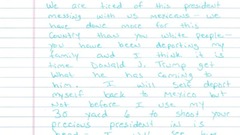 we are tired of this president
messing with us mexicans - we
have done more for this
country than you white people -
you have been deporting my
family and I think it is
time Donald J. Trump get
what he has coming to
him. I will self deport
myself back to Mexico but
not before I use my
30 yard 6 to shoot your
precious president in is